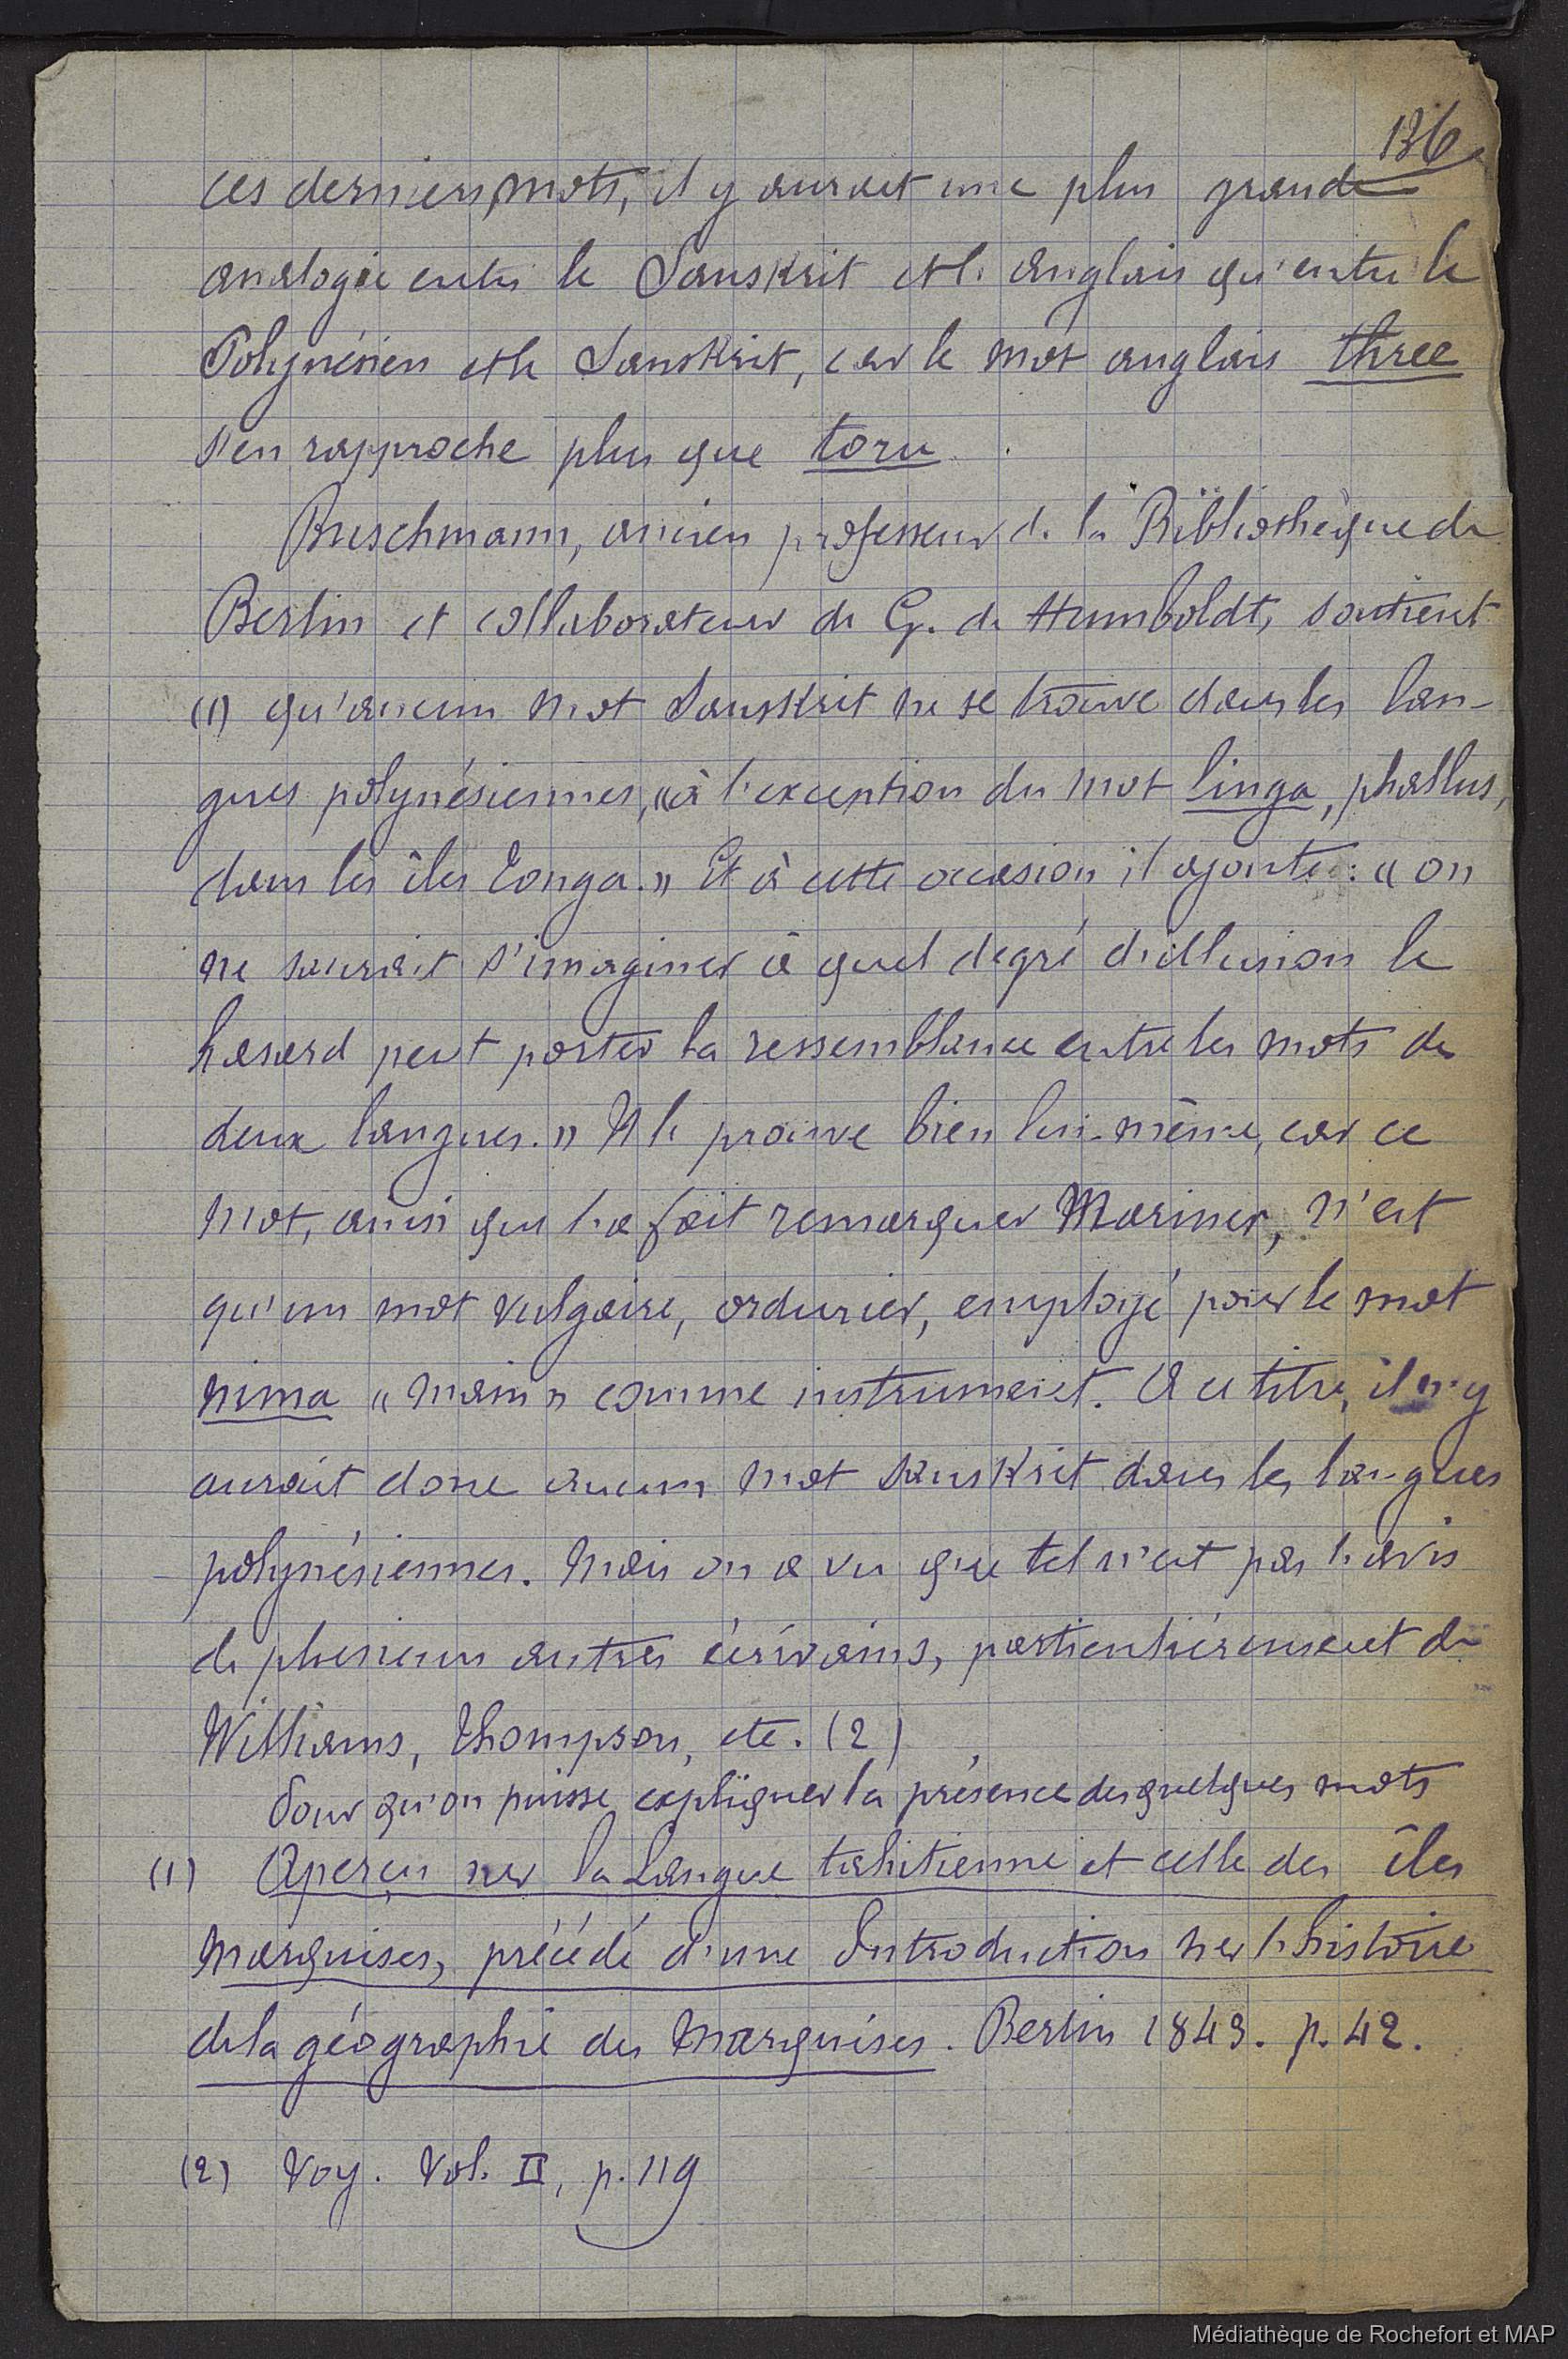 136
ces derniers mots, il y aurait une plus grande
analogie entre le Sanskrit et l'anglais qu'entre le
Polynésien et le Sanskrit, car le mot anglais three
s'en rapproche plus que toru.
Buschmann, ancien professeur de la Bibliothèque de
Berlin et collaborateur de G. de Humboldt, soutient
(1) qu'aucun mot Sanskrit ne se trouve dans les lan-
gues polynésiennes, « à l'exception du mot linga, phallus,
dans les îles Tonga. » Et à cette occasion il ajoute : « on
ne saurait s'imaginer à quel degré d'illusion le
hasard peut porter la ressemblance entre les mots de
deux langues. » Il le prouve bien lui-même, car ce
mot, ainsi que l'a fait remarquer Mariner, n'est
qu'un mot vulgaire, ordurier, employé pour le mot
nima « main » comme instrument. A ce titre, il n'y
aurait donc aucun mot sanskrit dans les langues
polynésiennes. Mais on a vu que tel n'est pas l'avis
de plusieurs autres écrivains, particulièrement de
Williams, Thompson, etc. (2)
Pour qu'on puisse expliquer la présence de quelques mots
(1) Aperçu sur la Langue tahitienne et celle des îles
Marquises, précédé d'une Introduction sur l'histoire
de la géographie des Marquises. Berlin 1843. p. 42.
(2) Voy. Vol. II, p. 119
Médiathèque de Rochefort et MAP